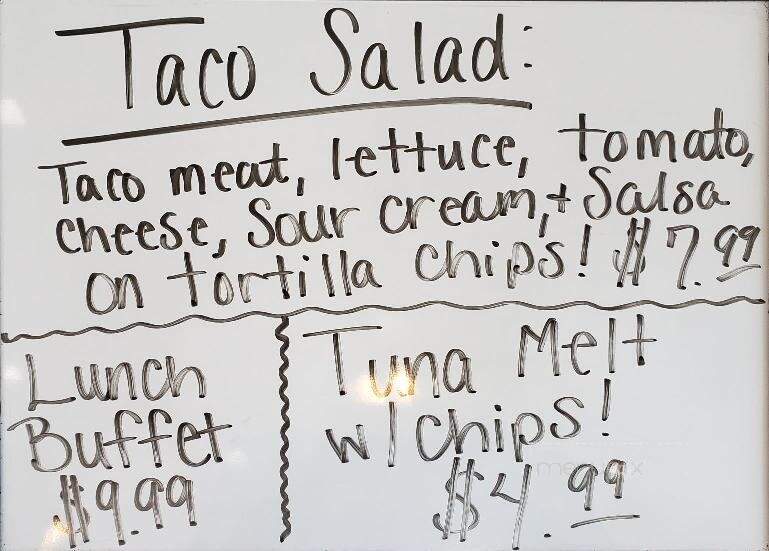 Taco Salad:
Taco meat, lettuce, tomato,
cheese, Sour cream, + Salsa
on tortilla chips! $7.99
Lunch
Buffet
$9.99
Tuna Melt
w/chips!
$4.99